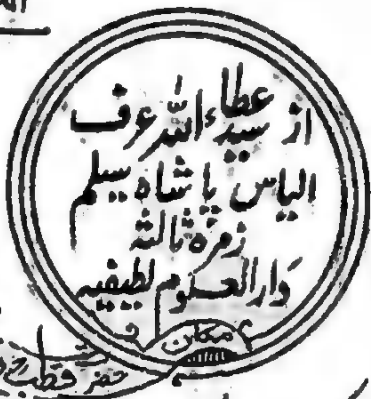 از سید عطاء اللہ عرف
الیاس پاشاہ سیلم
زمرہ ثالثہ
دار العلوم لطیفیہ
مکان
حضرت قطب